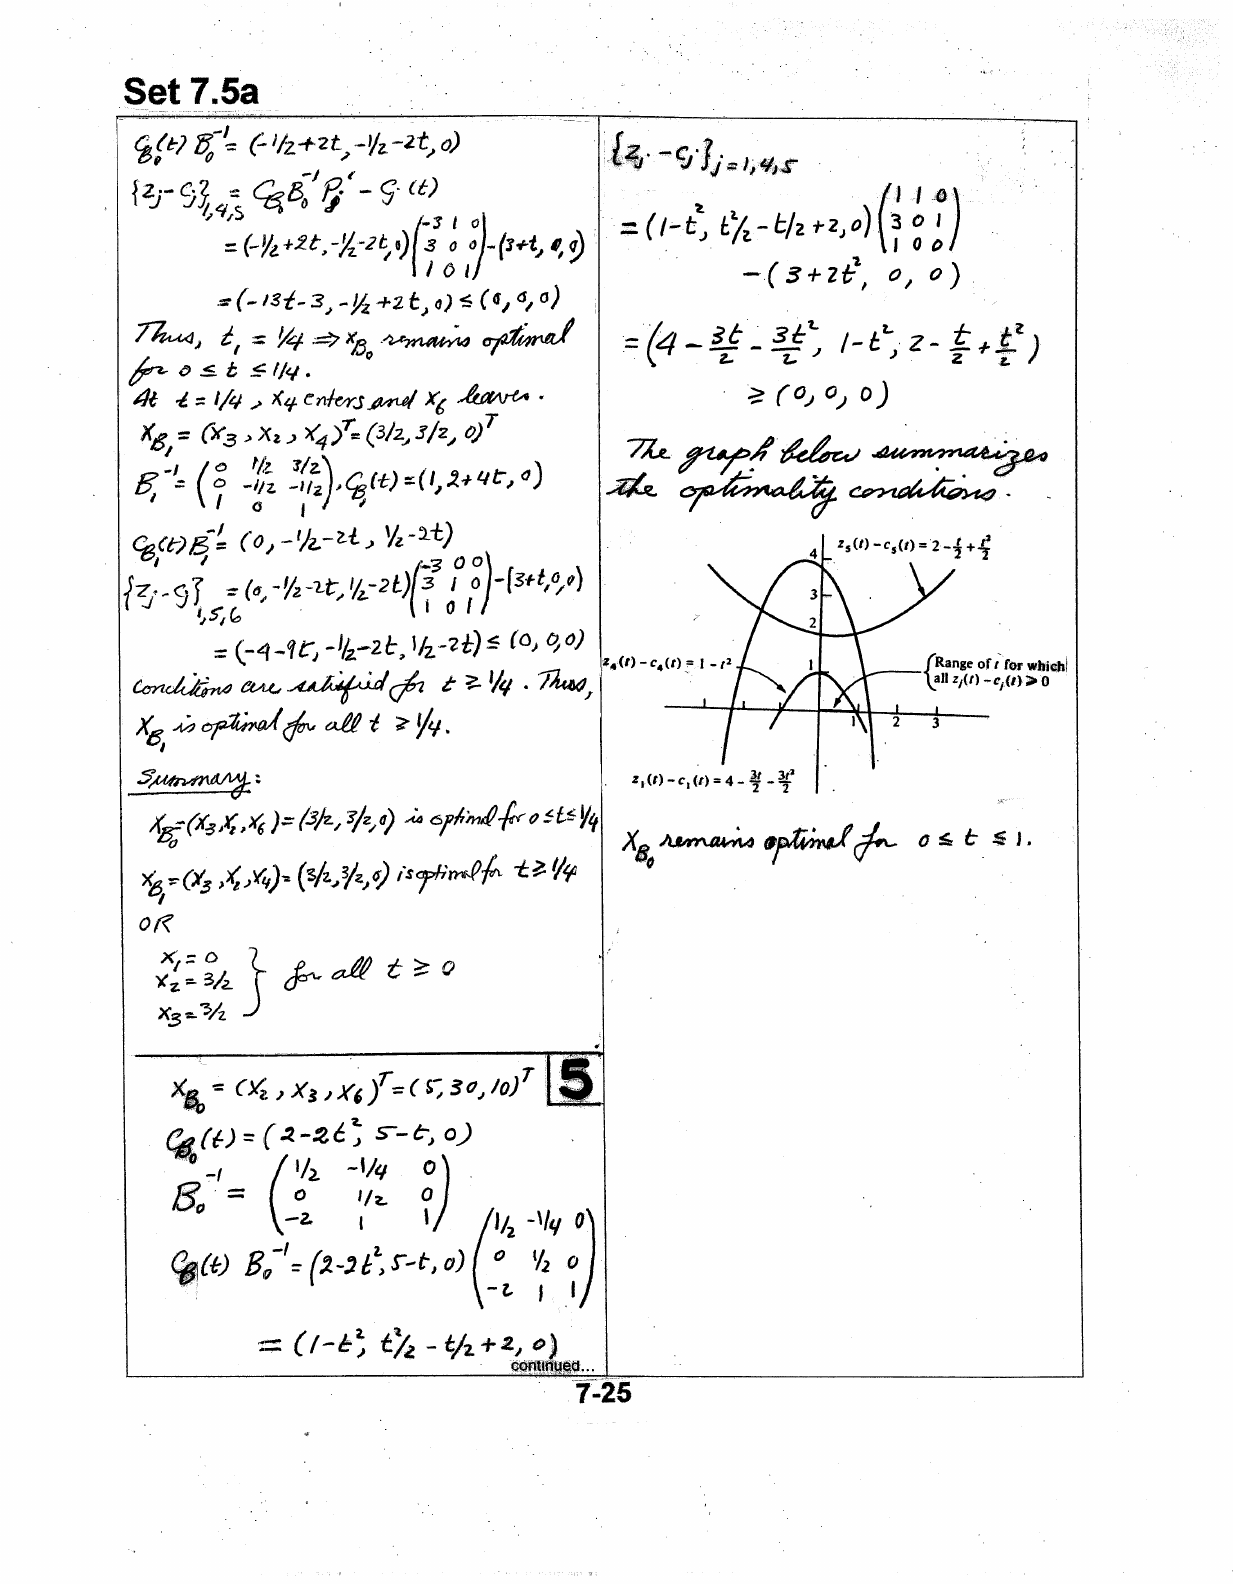 Set 7.5a
C_B₀(t) B₀⁻¹ = (-1/2+2t, -1/2-2t, 0)
{zj - cj}₁,₄,₅ = C_B₀ B₀⁻¹ Pj' - cj(t)
= (-1/2+2t, -1/2-2t, 0) (-3 1 0
3 0 0
1 0 1) - (3+t, 0, 0)
= (-13t-3, -1/2+2t, 0) ≤ (0, 0, 0)
Thus, t₁ = 1/4 ⇒ x_B₀ remains optimal
for 0 ≤ t ≤ 1/4.
At t = 1/4, x4 enters and x6 leaves.
X_B₁ = (x3, x2, x4)ᵀ = (3/2, 3/2, 0)ᵀ
B₁⁻¹ = (0 1/2 3/2
0 -1/2 -1/2
1 0 1), C_B₁(t) = (1, 2+4t, 0)
C_B₁(t) B₁⁻¹ = (0, -1/2-2t, 1/2-2t)
{zj - cj}₁,₅,₆ = (0, -1/2-2t, 1/2-2t) (-3 0 0
3 1 0
1 0 1) - (3+t, 0, 0)
= (-4-9t, -1/2-2t, 1/2-2t) ≤ (0, 0, 0)
Conditions are satisfied for t ≥ 1/4. Thus,
X_B₁ is optimal for all t ≥ 1/4.
Summary:
X_B₀ = (x3, x2, x6) = (3/2, 3/2, 0) is optimal for 0 ≤ t ≤ 1/4
X_B₁ = (x3, x2, x4) = (3/2, 3/2, 0) is optimal for t ≥ 1/4
OR
x1 = 0
x2 = 3/2 } for all t ≥ 0
x3 = 3/2
X_B₀ = (x2, x3, x6)ᵀ = (5, 30, 10)ᵀ 5
C_B₀(t) = (2-2t², 5-t, 0)
B₀⁻¹ = (1/2 -1/4 0
0 1/2 0
-2 1 1)
C_B(t) B₀⁻¹ = (2-2t², 5-t, 0) (1/2 -1/4 0
0 1/2 0
-2 1 1)
= (1-t², t²/2 - t/2 + 2, 0)
continued...
{zj - cj}j=1,4,5
= (1-t², t²/2 - t/2 + 2, 0) (1 1 0
3 0 1
1 0 0)
- (3+2t², 0, 0)
= (4 - 3t/2 - 3t²/2, 1-t², 2 - t/2 + t²/2)
≥ (0, 0, 0)
The graph below summarizes
the optimality conditions.
z5(t) - c5(t) = 2 - t/2 + t²/2
4
3
2
z4(t) - c4(t) = 1 - t²
1
Range of t for which
all zj(t) - cj(t) ≥ 0
1 2 3
z1(t) - c1(t) = 4 - 3t/2 - 3t²/2
X_B₀ remains optimal for 0 ≤ t ≤ 1.
7-25